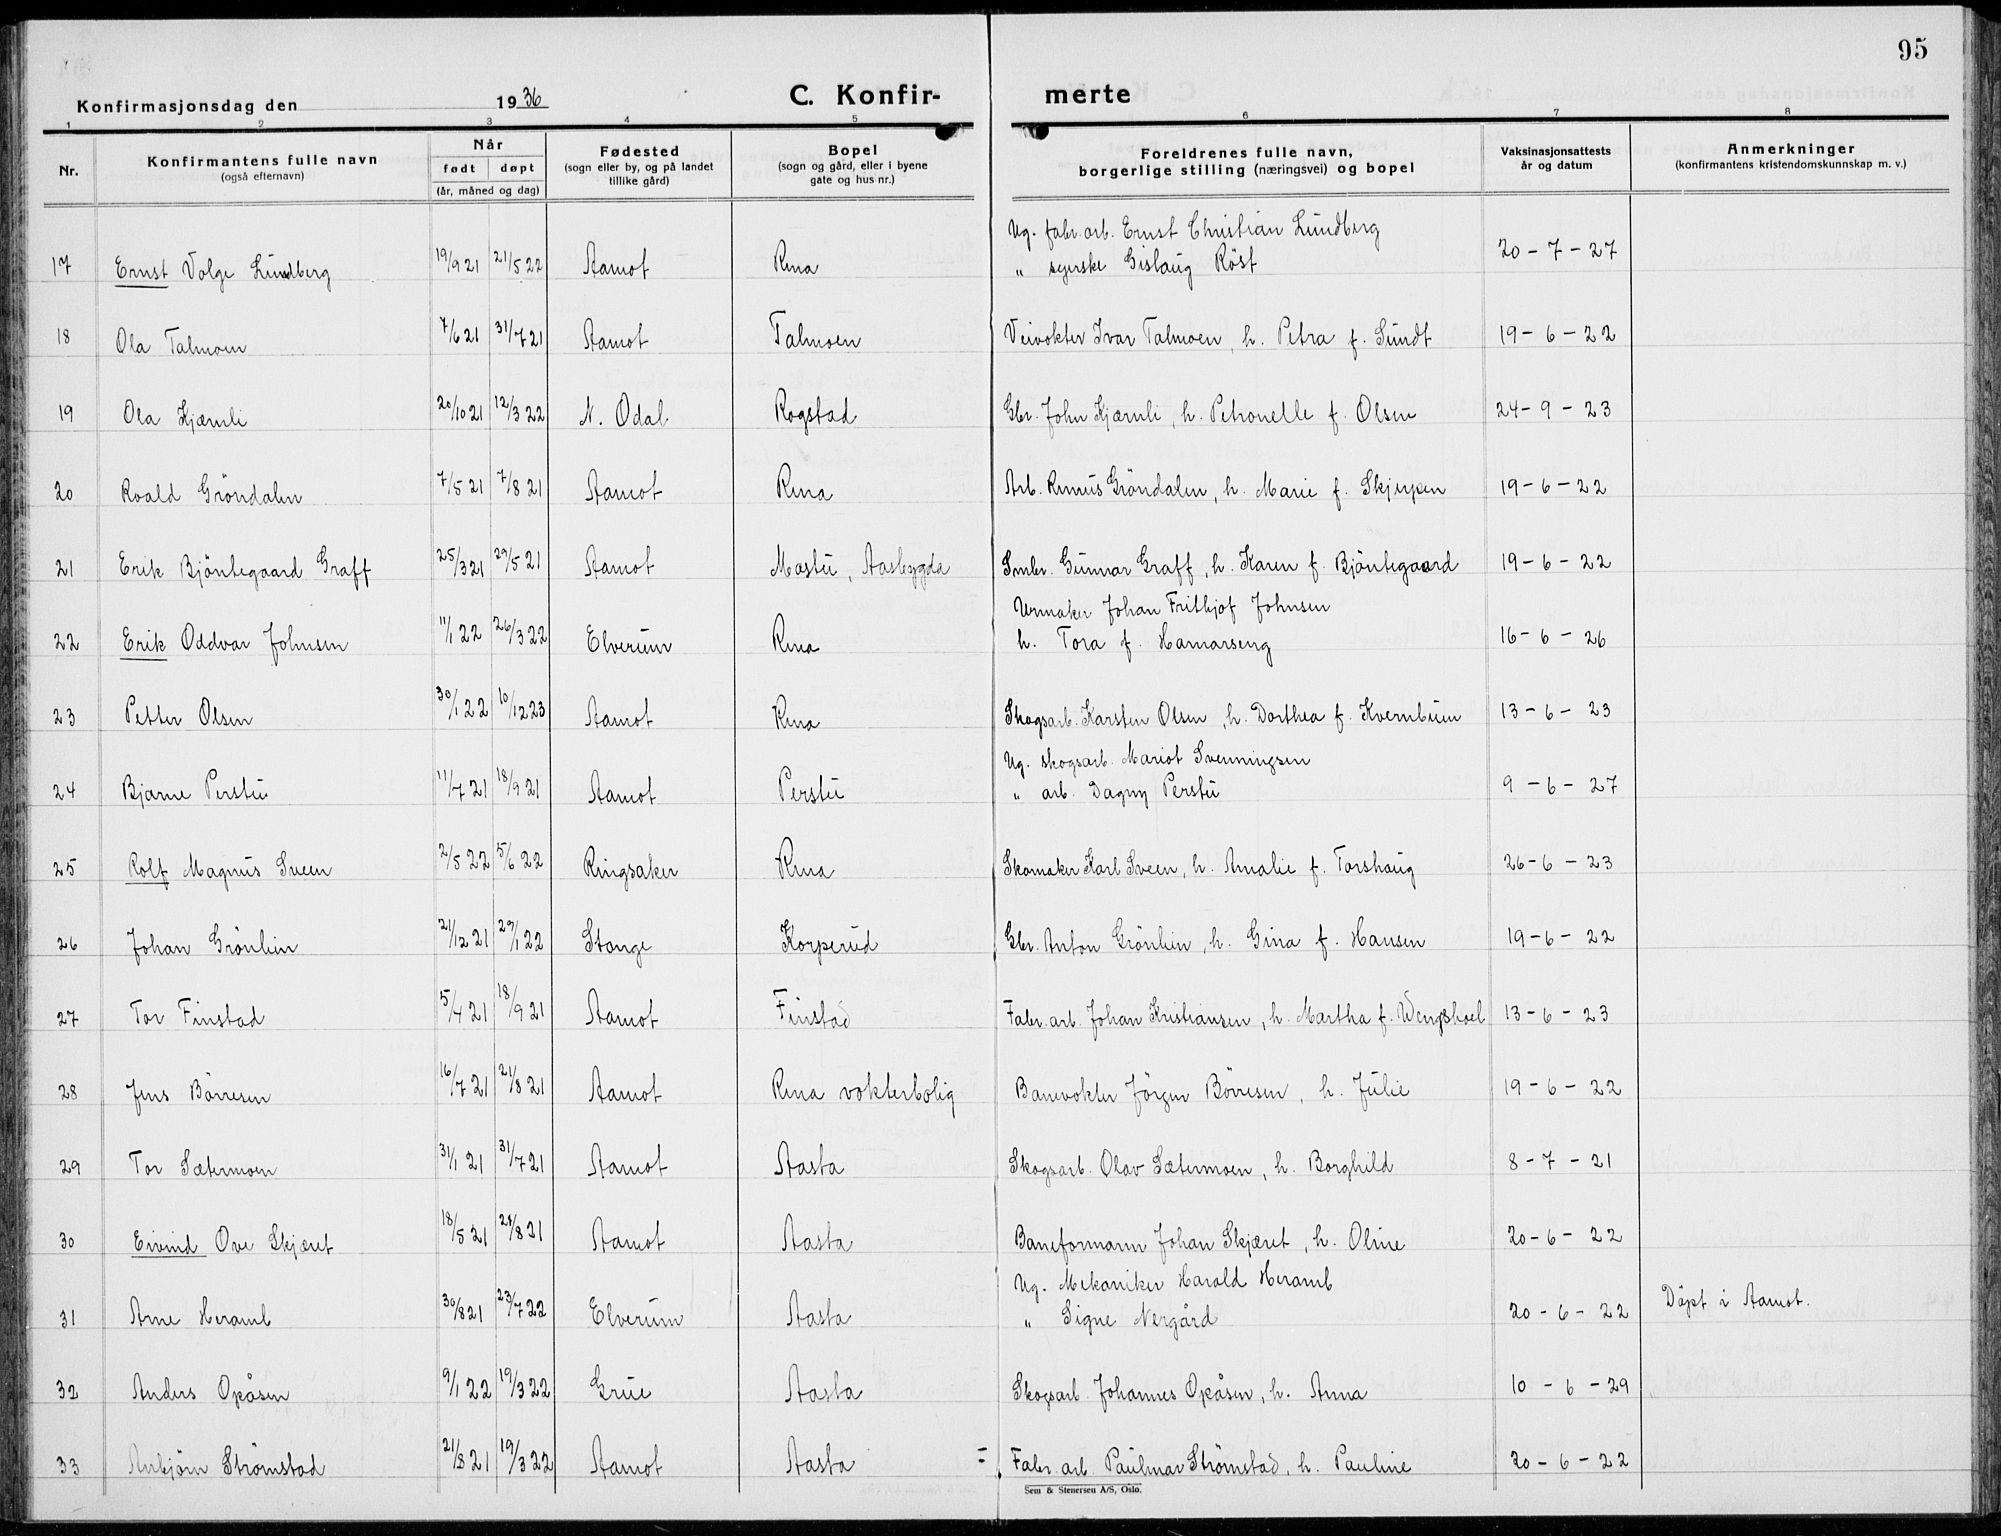 95
Konfirmasjonsdag den 1936 C. Konfir- merte
1 2 3 4 5 6 7 8
Nr. Konfirmantens fulle navn (også efternavn) Når født døpt (år, måned og dag) Fødested (sogn eller by, og på landet tillike gård) Bopel (sogn og gård, eller i byene gate og hus nr.) Foreldrenes fulle navn, borgerlige stilling (næringsvei) og bopel Vaksinasjonsattests år og datum Anmerkninger (konfirmantens kristendomskunnskap m. v.)
Ug. fabr. arb. Ernst Christian Lundberg
17 Ernst Volge Lundberg 19/9 21 21/5 22 Aamot Rena " syerske Gislaug Röst 20 - 7 - 27
18 Ola Talmoen 7/6 21 31/7 21 Aamot Talmoen Veivokter Ivar Talmoen, h. Petra f. Sundt 19 - 6 - 22
19 Ola Kjærnli 20/10 21 12/3 22 N. Odal Rogstad Gbr. John Kjærnli, h. Petronelle f. Olsen 24 - 9 - 23
20 Roald Gröndalen 7/5 21 7/8 21 Aamot Rena Arb. Rasmus Gröndalen, h. Marie f. Skjerpen 19 - 6 - 22
21 Erik Bjöntegaard Graff 25/3 21 29/5 21 Aamot Mastu, Aasbygda Smbr. Gunnar Graff, h. Karen f. Bjöntegaard 19 - 6 - 22
Urmaker Johan Frithjof Johnsen
22 Erik Oddvar Johnsen 11/1 22 26/3 22 Elverum Rena h. Tora f. Hamarseng 16 - 6 - 26
23 Petter Olsen 30/1 22 10/12 23 Aamot Rena Skogsarb. Karsten Olsen, h. Dorthea f. Kvernbuen 13 - 6 - 23
Ug. skogsarb. Mariot Svenningsen
24 Bjarne Perstu 11/7 21 18/9 21 Aamot Perstu " arb. Dagny Perstu 9 - 6 - 27
25 Rolf Magnus Sveen 2/5 22 5/6 22 Ringsaker Rena Skomaker Karl Sveen, h. Amalie f. Torshaug 26 - 6 - 23
26 Johan Grönlien 21/12 21 29/1 22 Stange Korperud Gbr. Anton Grönlien, h. Gina f. Hansen 19 - 6 - 22
27 Tor Finstad 5/4 21 18/9 21 Aamot Finstad Fabr. arb. Johan Kristiansen, h. Martha f. Wengshoel 13 - 6 - 23
28 Jens Börresen 16/7 21 21/8 21 Aamot Rena vokterbolig Banevokter Jörgen Börresen, h. Julie 19 - 6 - 22
29 Tor Sætermoen 31/1 21 31/7 21 Aamot Aasta Skogsarb. Olav Sætermoen, h. Borghild 8 - 7 - 21
30 Eivind Ove Skjæret 18/5 21 28/8 21 Aamot Aasta Baneformann Johan Skjæret, h. Oline 20 - 6 - 22
Ug. Mekaniker Harald Heramb
31 Arne Heramb 30/8 21 23/7 22 Elverum Aasta " Signe Nergård 20 - 6 - 22 Döpt i Aamot.
32 Anders Opåsen 9/1 22 19/3 22 Grue Aasta Skogsarb. Johannes Opåsen, h. Anna 10 - 6 - 29
33 Anbjörn Strömstad 21/8 21 19/3 22 Aamot Aasta Fabr. arb. Paulmar Strömstad, h. Pauline 20 - 6 - 22
Sem & Stenersen A/S, Oslo.